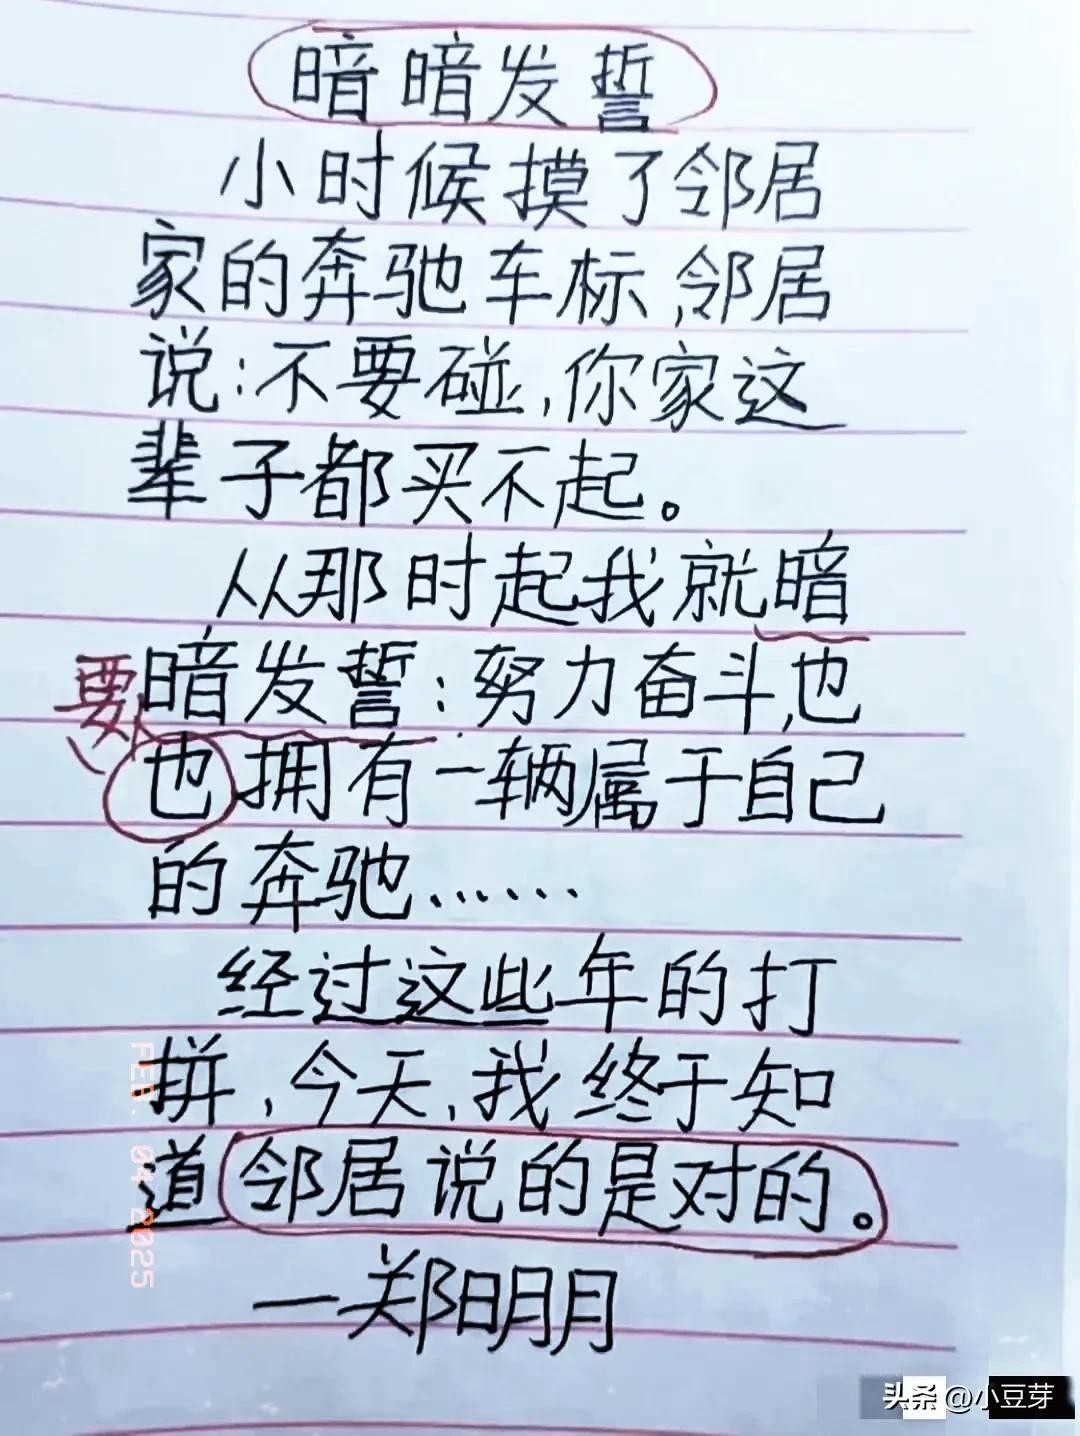 暗暗发誓
小时候摸了邻居
家的奔驰车标,邻居
说:不要碰,你家这
辈子都买不起。
从那时起我就暗
要
暗发誓:努力奋斗,也
也拥有一辆属于自己
的奔驰……
经过这些年的打
拼,今天,我终于知
道邻居说的是对的。
一郑阳明月
FEB. 04 2025
头条 @小豆芽